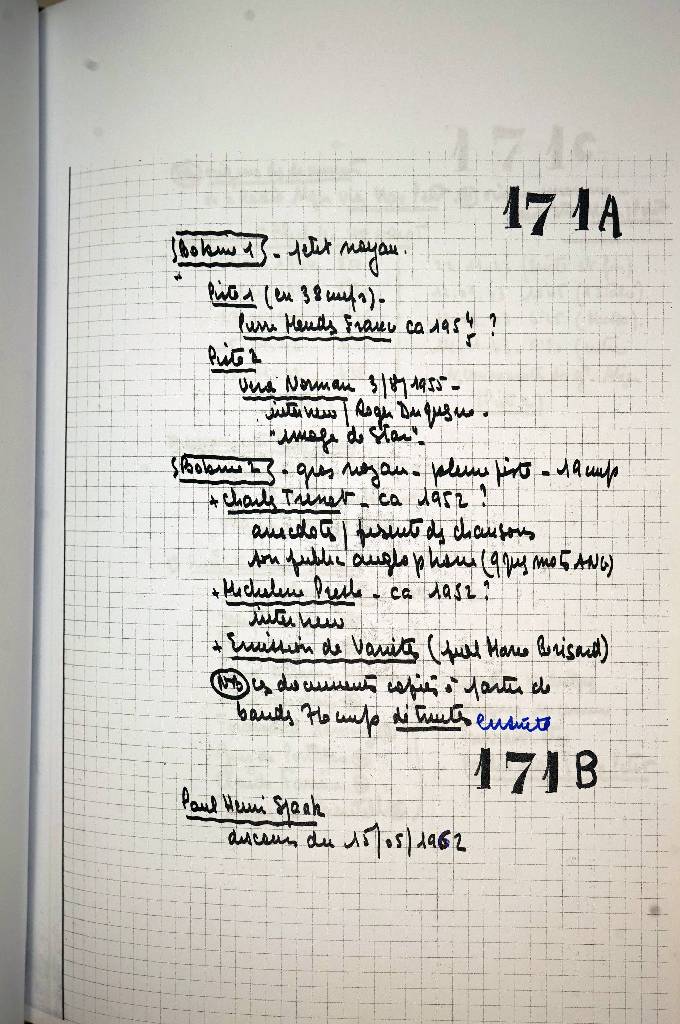 171A
Bobine 1 - petit noyau.
Piste 1 (en 38 cmps) -
Pierre Mendès France ca 1954 5 ?
Piste 2
Vera Norman 3/8/1955 -
interview / Roger Duquesne.
"image de Star" -
Bobine 2 - gros noyau - pleine piste - 19 cmps
+ Charles Trenet - ca 1952 ?
anecdotes / présente des chansons
son public anglophone (qques mots ANG)
+ Micheline Presle - ca 1952 ?
interview
+ Emission de Variétés (prés Marc)
NB ces documents copiés à partir de
bandes 76 cmps détruites ensuite
171B
Paul Henri Spaak
discours du 15/05/1962